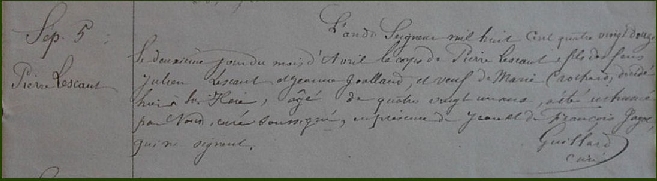 Sep. 5 :
Pierre Lescaut
L'an du Seigneur mil huit Cent quatre vingt douze
le deuxième jour du mois d'Avril le corps de Pierre Lescaut, fils des feus
Julien Lescaut et Jeanne Goalland, et veuf de Marie Crothard, décédé
hier à la Haie, âgé de quatre vingt un ans, a été inhumé
par Nous, curé soussigné, en présence de Jean et de François
qui ne signent.
Guillard
curé